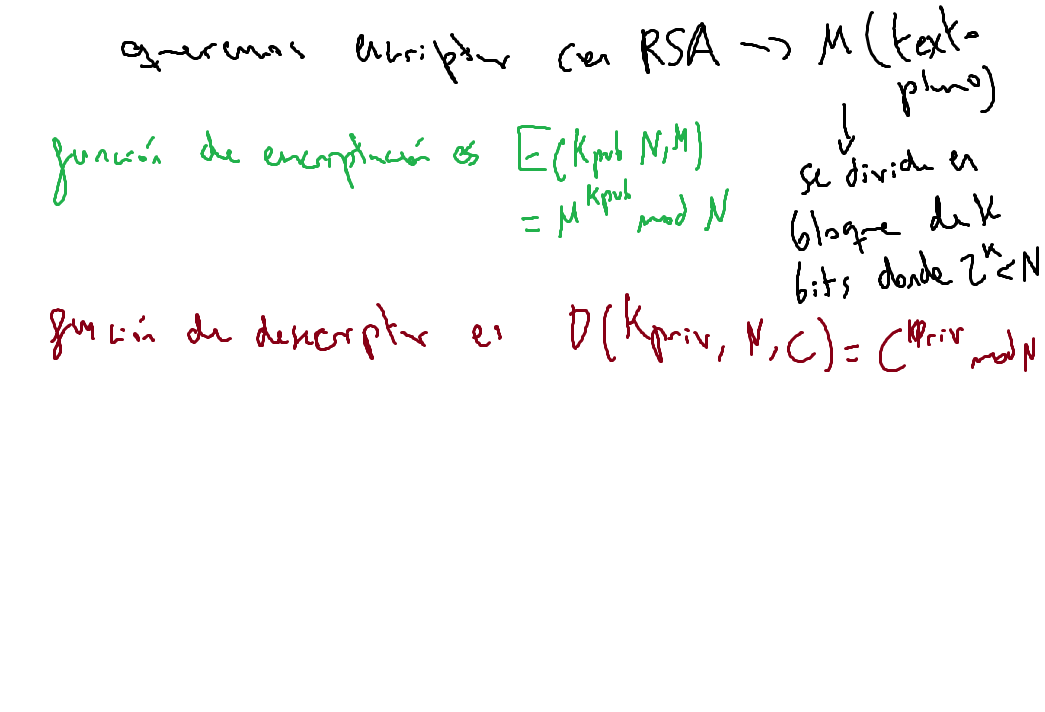 queremos encriptar con RSA → M (texto
plano)
↓
se divide en
bloque de K
bits donde 2^K < N
función de encriptación es E(Kpub N, M)
= M^Kpub mod N
función de desencriptar es D(Kpriv, N, C) = C^Kpriv mod N